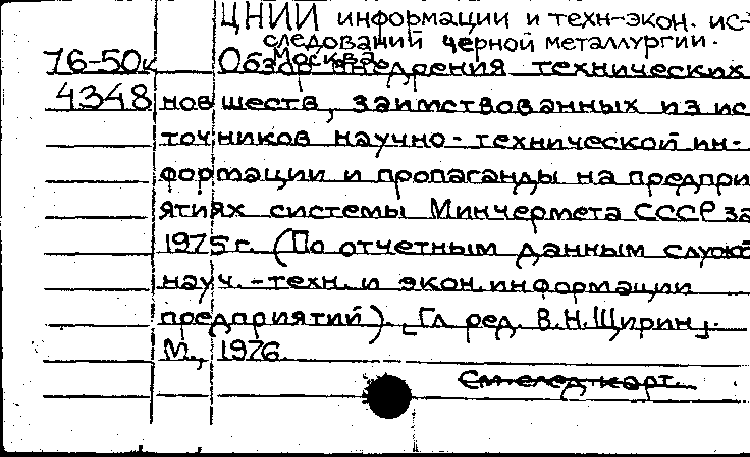 ЦНИИ информации и техн-экон. ис-
следований черной металлургии.
Москва.
76-50к Обзор внедрения технических
4348 новшеств, заимствованных из ис
точников научно-технической ин-
формации и пропаганды на предпри
ятиях системы Минчермета СССР за
1975 г. (По отчетным данным служб
науч.-техн. и экон. информации
предприятий). [Гл ред. В.Н.Щирин].
М., 1976.
См. след. карт.